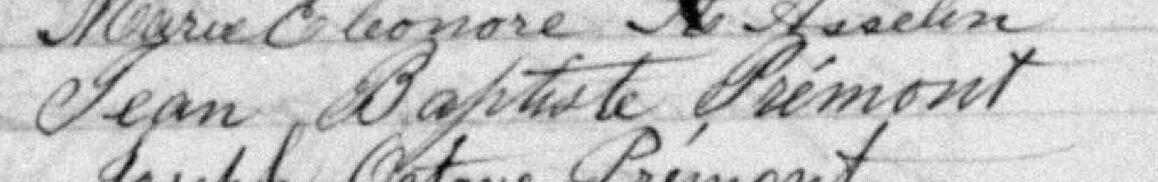 Marie Eleonore A Asselin
Jean Baptiste Prémont
Joseph Octave Prémont